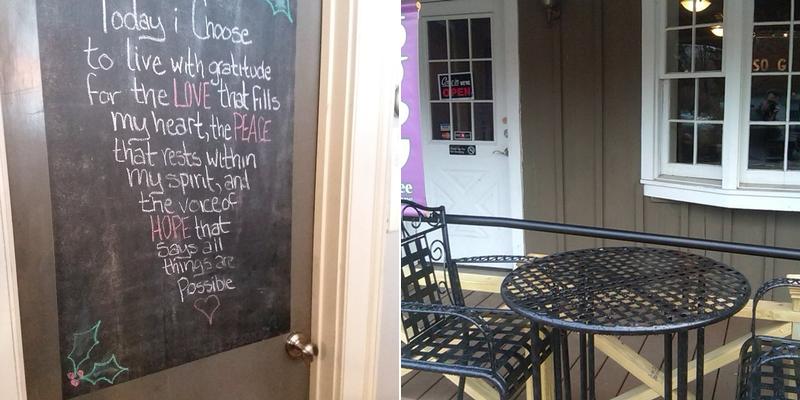 Today i Choose
to live with gratitude
for the LOVE that fills
my heart, the PEACE
that rests within
my spirit, and
the voice of
HOPE that
says all
things are
Possible
OPEN
SO G